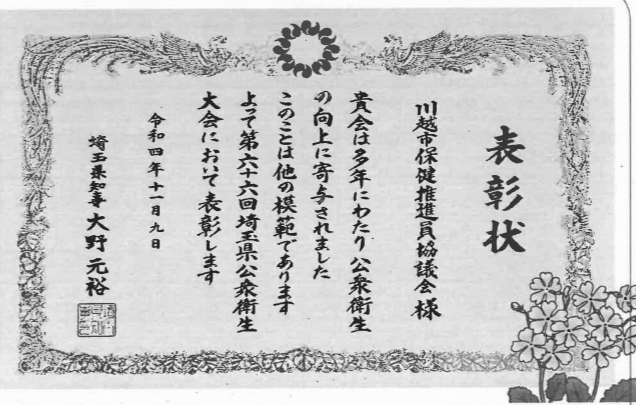 表彰状
川越市保健推進員協議会様
貴会は多年にわたり公衆衛生
の向上に寄与されました
このことは他の模範であります
よって第六十六回埼玉県公衆衛生
大会において表彰します
令和四年十一月九日
埼玉県知事 大野元裕